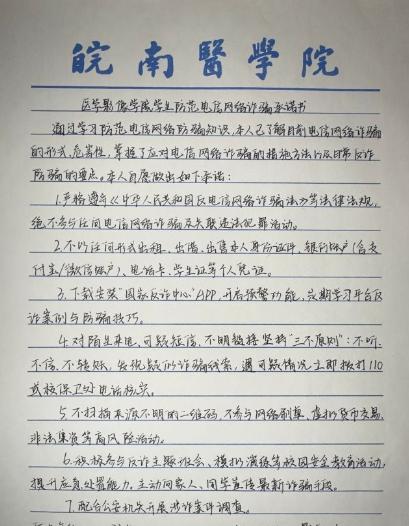 皖南醫學院
医学影像学院学生防范电信网络诈骗承诺书
通过学习防范电信网络防骗知识，本人已了解目前电信网络诈骗
的形式、危害性，掌握了应对电信网络诈骗的措施方法以及日常反诈
防骗的要点。本人自愿做出如下承诺：
1.严格遵守《中华人民共和国反电信网络诈骗法》等法律法规，
绝不参与任何电信网络诈骗及关联违法犯罪活动。
2.不以任何形式出租、出借、出售本人身份证件、银行账户(含支
付宝/微信账户)、电话卡、学生证等个人凭证。
3.下载安装"国家反诈中心"APP，开启预警功能，定期学习平台反
诈案例与防骗技巧。
4.对陌生来电、可疑短信、不明链接坚持"三不原则"：不听、
不信、不转账，发现疑似诈骗线索，遇可疑情况立即拨打110
或校保卫处电话核实。
5.不扫描来源不明的二维码，不参与网络刷单、虚拟货币交易、
非法集资等高风险活动。
6.积极参与反诈主题班会、模拟演练等校园安全教育活动，
提升应急处置能力，主动向家人、同学宣传最新诈骗手段。
7.配合公安机关开展涉诈案件调查。